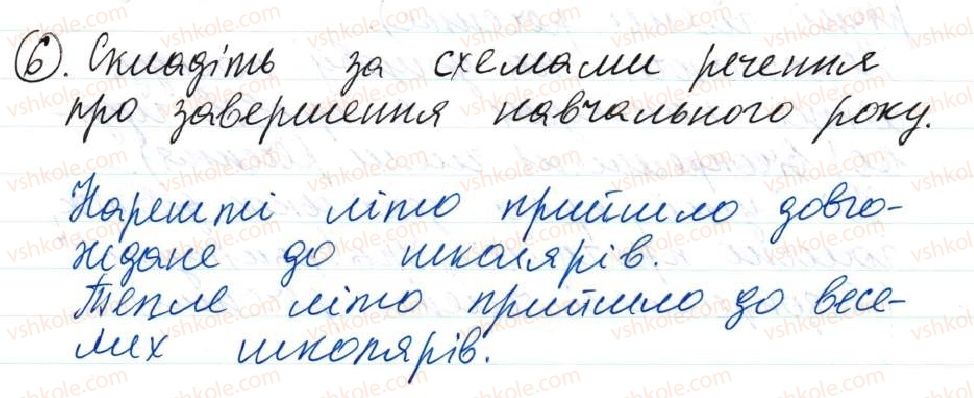 6. Складіть за схемами речення
про завершення навчального року.
Нарешті літо прийшло довго-
ждане до школярів.
Тепле літо прийшло до весе-
лих школярів.